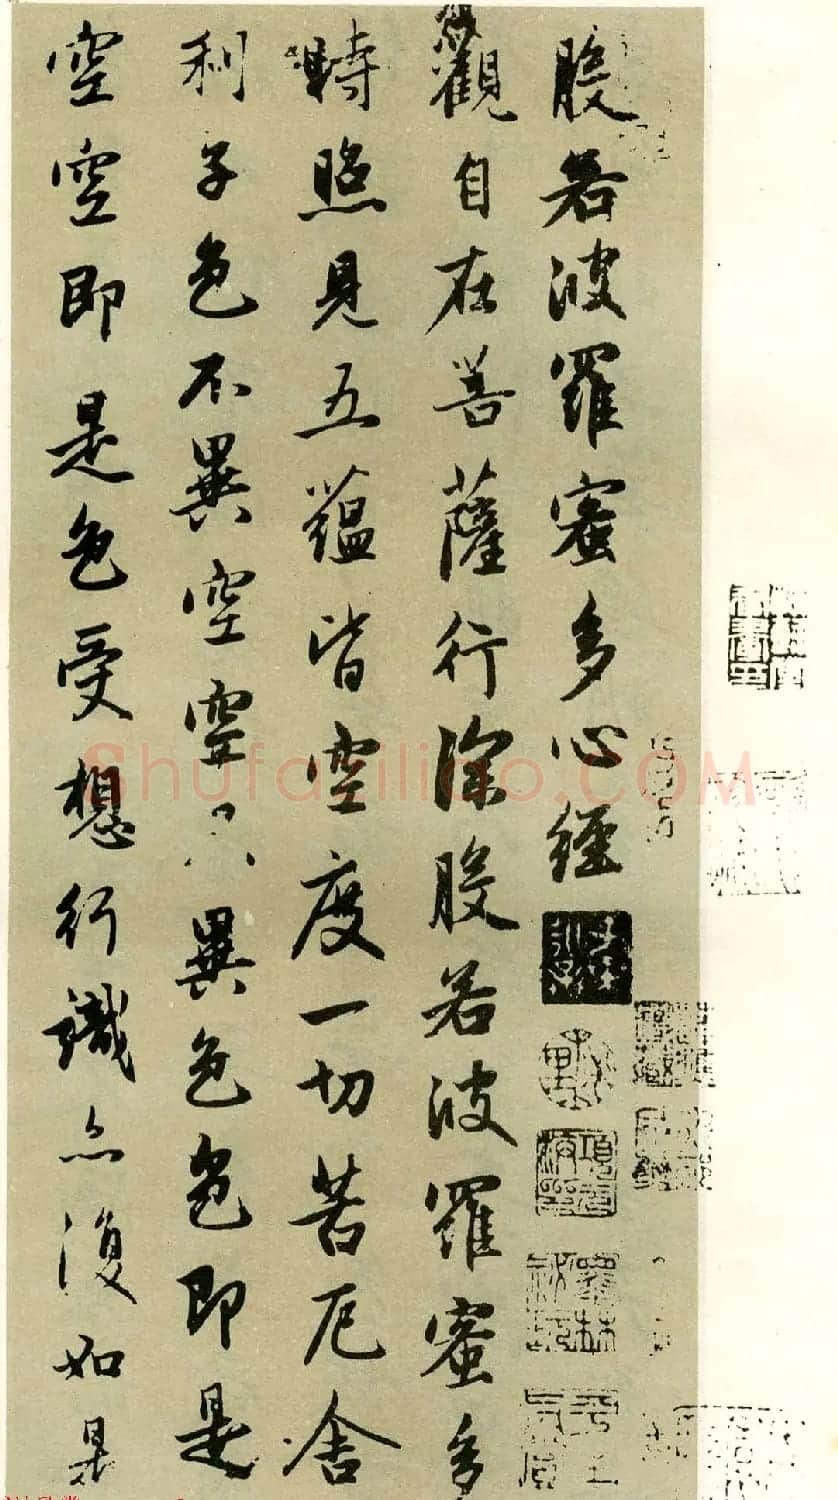 般若波羅蜜多心經
觀自在菩薩行深般若波羅蜜多
時照見五蘊皆空度一切苦厄舍
利子色不異空空不異色色即是
空空即是色受想行識亦復如是
Shufaziliao.COM